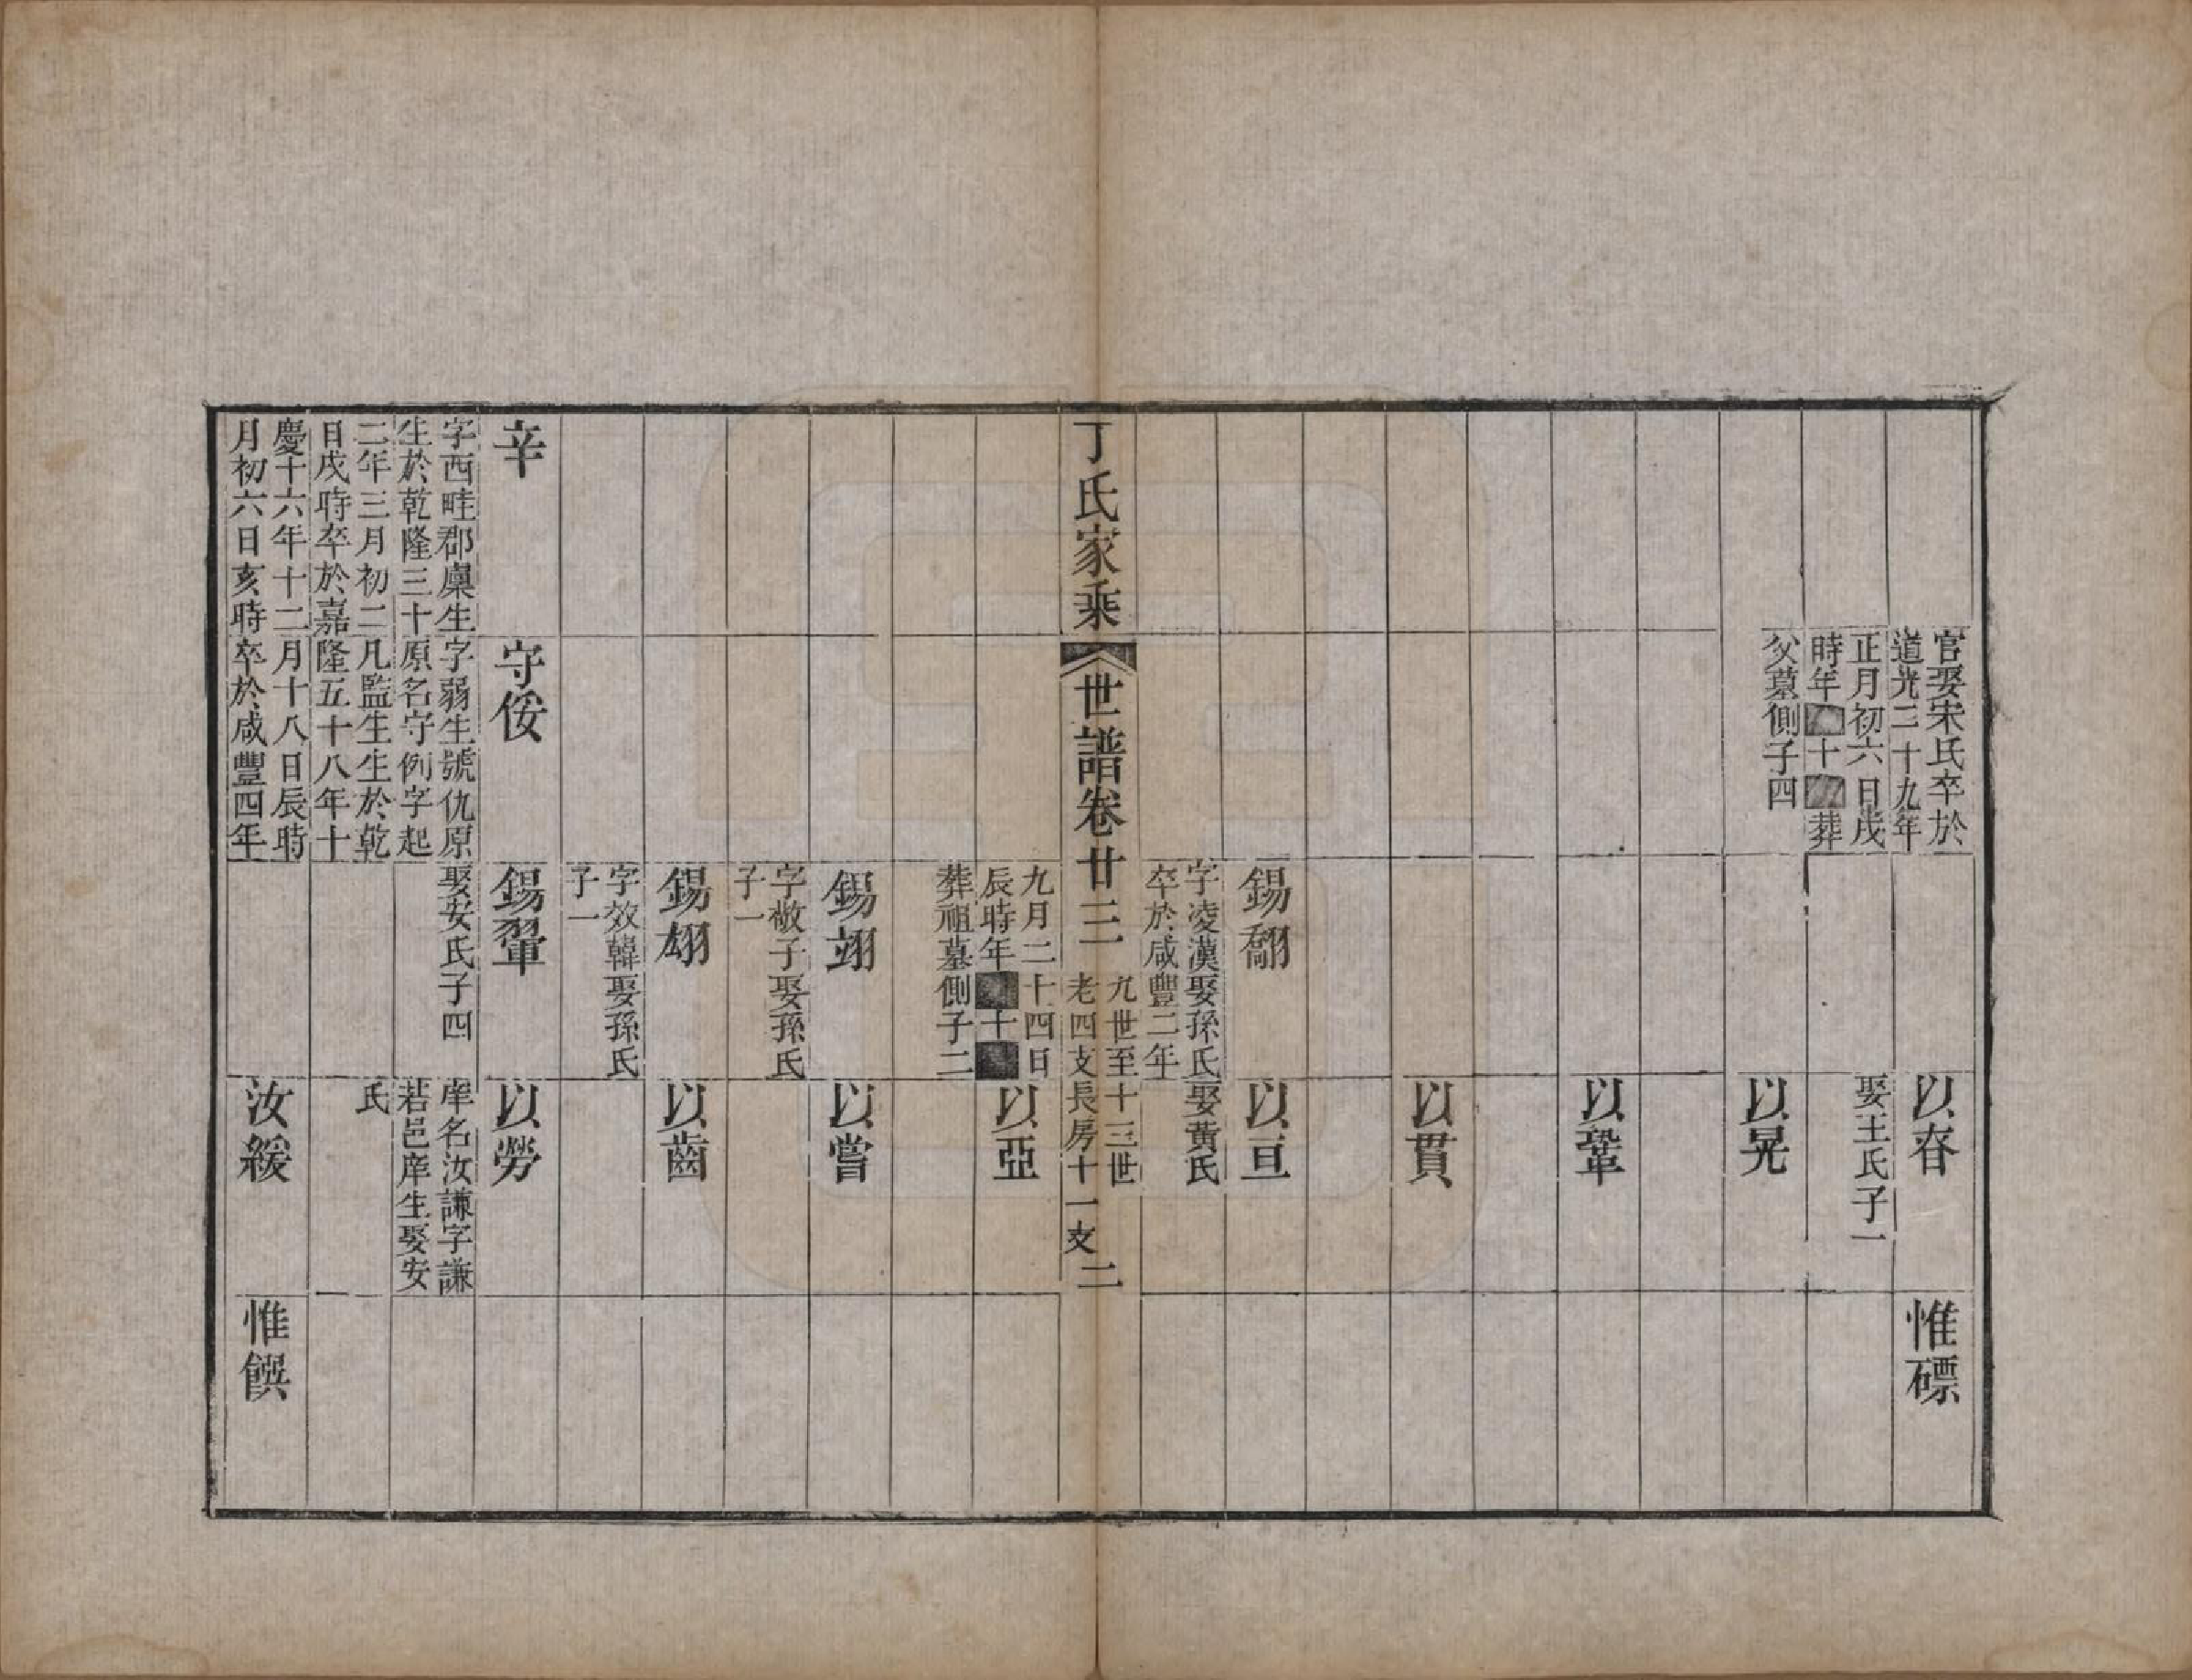 官娶宋氏卒於
道光二十九年
正月初六日戌
時年十葬
父墓側子四
以春
娶王氏子一
惟磦
以晃
以鞏
以貫
錫鬍
字凌漢娶孫氏
卒於咸豐二年
以亘
娶黃氏
丁氏家乘
世譜卷廿三
九世至十三世
老四支長房十一支
二
九月二十四日
辰時年十
葬祖墓側子二
以亞
錫翊
字敝子娶孫氏
子一
以嘗
錫翃
字效韓娶孫氏
子一
以齒
辛
字西畦郡廩生
生於乾隆三十
二年三月初二
日戌時卒於嘉
慶十六年十二
月初六日亥時
守侫
字弱生號仇原
原名守例字起
凡監生生於乾
隆五十八年十
月十八日辰時
卒於咸豐四年
錫翬
娶安氏子四
以勞
庠名汝謙字謙
若邑庠生娶安
氏
汝緩
惟饌